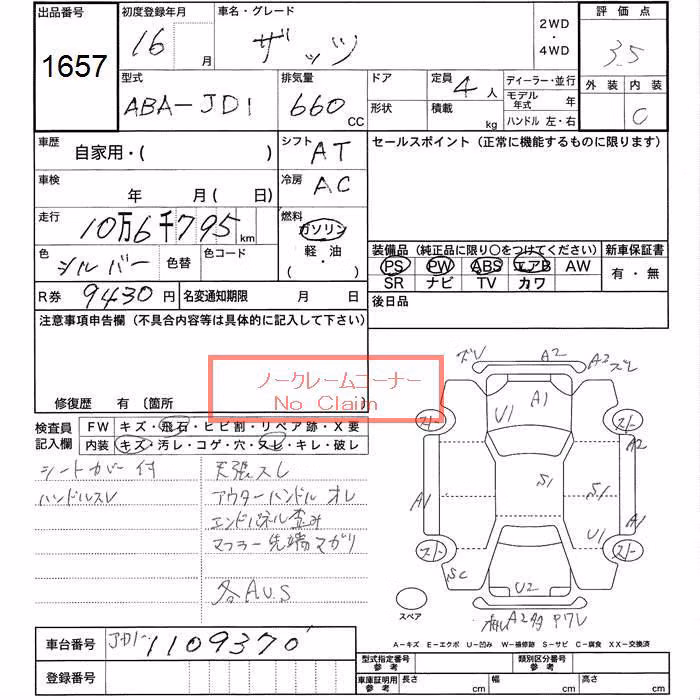 出品番号
1657
初度登録年月
16 月
車名・グレード
ザッツ
2WD
・
4WD
評価点
3.5
外装 内装
C
型式
ABA-JD1
排気量
660 CC
ドア
形状
定員
4人
積載
kg
ディーラー・並行
モデル年式 年
ハンドル 左・右
車歴
自家用・( )
シフト
AT
セールスポイント (正常に機能するものに限ります)
車検
年 月 ( 日)
冷房
AC
走行
10万6千795 km
燃料
ガソリン
軽・油
( ・ )
色
シルバー
色替
色コード
装備品 (純正品に限り○をつけてください)
PS PW ABS エアB AW
SR ナビ TV カワ
新車保証書
有・無
R券 9430円
名変通知期限 月 日
後日品
注意事項申告欄 (不具合内容等は具体的に記入して下さい)
ノークレームコーナー
No Claim
修復歴 有 〔箇所
検査員
記入欄
FW キズ・飛石・ヒビ割・リペア跡・X要
内装 キズ・汚レ・コゲ・穴・スレ・キレ・破レ
シートカバー付
ハンドルスレ
天張スレ
アウターハンドルオレ
エンドパネル歪み
マフラー先端マガリ
各AU.S
ズレ A2 A2 ズレ
U1 A1
スト スト
A2
S1 S1
A1 A1
U1
スト スト
SC
U2
A2
スペア
A-キズ E-エクボ U-凹み W-補修跡 S-サビ C-腐食 XX-交換済
車台番号
JD1-1109370
登録番号
型式指定番号
参考
類別区分番号
参考
車庫証明用
参考
長さ cm
幅 cm
高さ cm